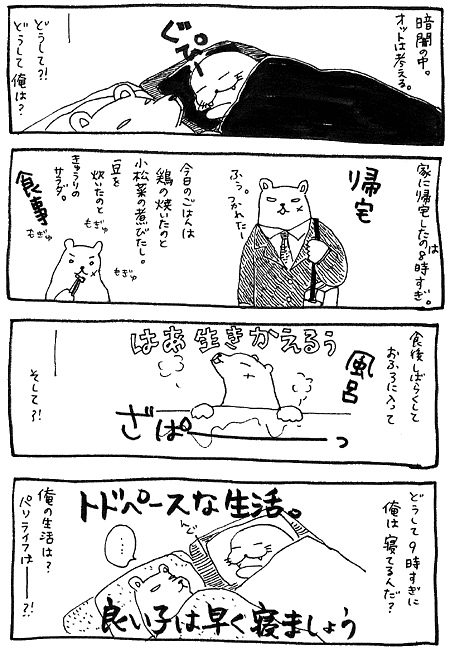 暗闇の中。
オットは考える。
ぐぴー
どうして?!
どうして俺は?
家に帰宅したのは8時すぎ。
帰宅
ふぅ。つかれたー
今日のごはんは
鶏の焼いたのと
小松菜の煮びたし。
豆を
炊いたのと
きゅうりの
サラダ。
食事
もぎゅ
もぎゅ
もぎゅ
食後しばらくして
おふろに入って
風呂
はあ生きかえるぅ
ざぱーーっ
そして?!
どうして9時すぎに
俺は寝てるんだ?
トドペースな生活。
んぐ
…
俺の生活は?
パリライフは――?!
良い子は早く寝ましょう